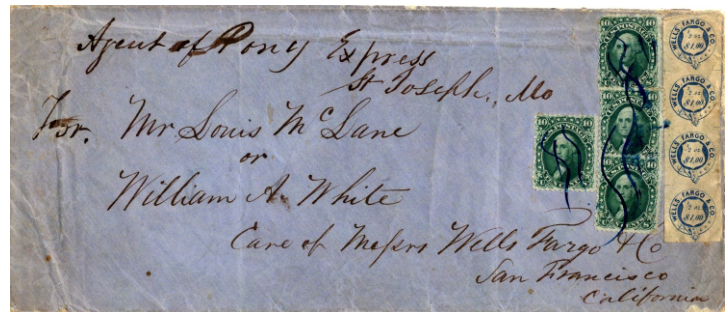 Agent of Pony Express
St Joseph, Mo
For. Mr Louis McLane
or
William A. White
Care of Messrs Wells Fargo & Co
San Francisco
California
10 10
10 10
10 10
WELLS FARGO & CO
½ oz.
$1.00
WELLS FARGO & CO
½ oz.
$1.00
WELLS FARGO & CO
½ oz.
$1.00
WELLS FARGO & CO
½ oz.
$1.00